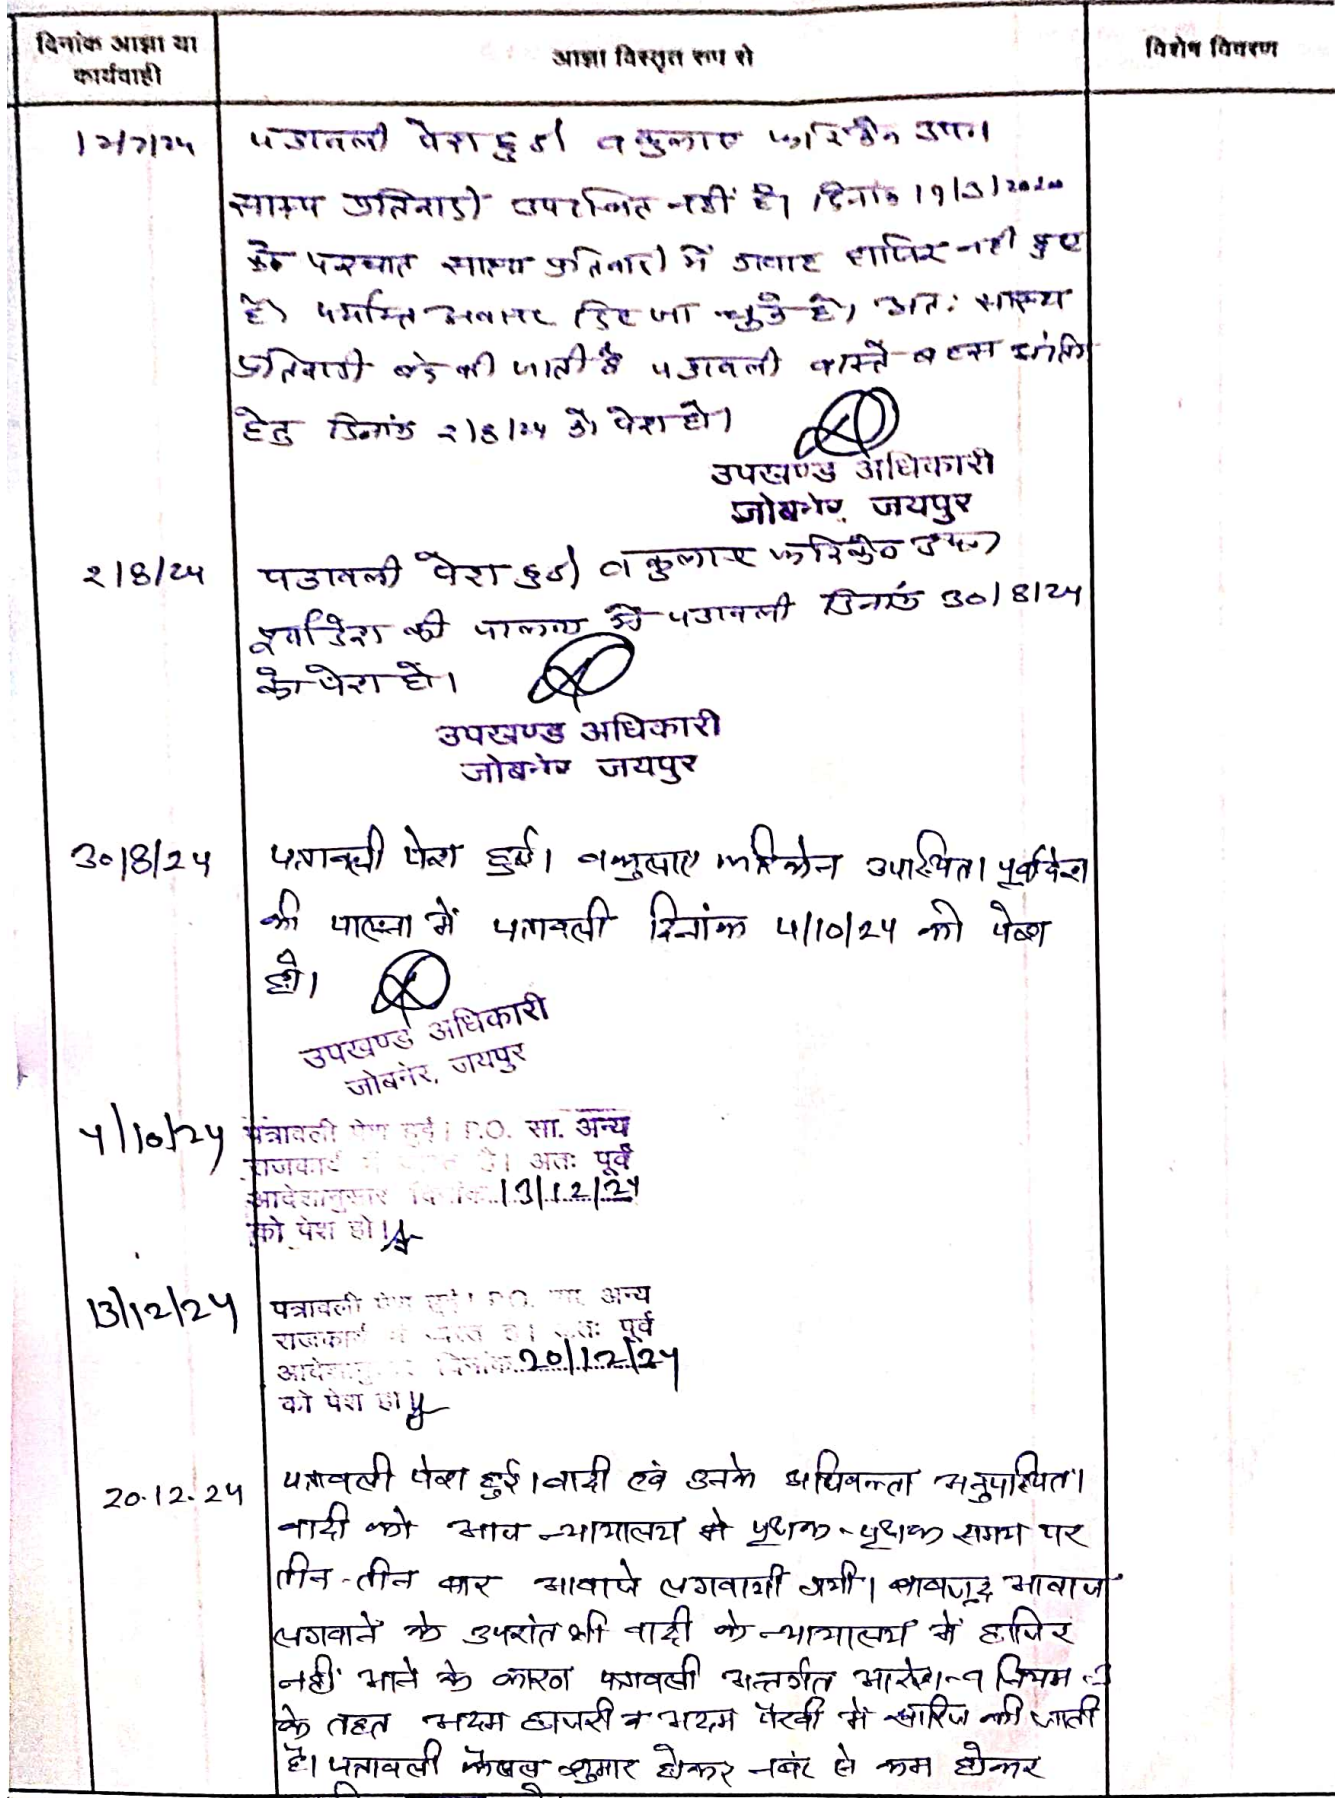 दिनांक आज्ञा या
कार्यवाही
आज्ञा विस्तृत रूप से
विशेष विवरण
12/7/24
पत्रावली पेश हुई। वकुलाए फरिकेन उप०।
साक्ष्य प्रतिवादी उपस्थित नहीं है। दिनांक 19/3/2020
के पश्चात साक्ष्य प्रतिवादी में गवाह हाजिर नहीं हुए
है। पर्याप्त अवसर दिए जा चुके है। अतः साक्ष्य
प्रतिवादी बंद की जाती है पत्रावली वास्ते बहस अंतिम
हेतु दिनांक 2/8/24 को पेश हो।
उपखण्ड अधिकारी
जोबनेर, जयपुर
2/8/24
पत्रावली पेश हुई। वकुलाए फरिकेन उप०।
पूर्वादेश की पालना में पत्रावली दिनांक 30/8/24
को पेश हो।
उपखण्ड अधिकारी
जोबनेर जयपुर
30/8/24
पत्रावली पेश हुई। वकुलाए फरिकेन उपस्थित। पूर्वादेश
की पालना में पत्रावली दिनांक 4/10/24 को पेश
हो।
उपखण्ड अधिकारी
जोबनेर, जयपुर
4/10/24
पत्रावली पेश हुई। P.O. सा. अन्य
राजकार्य में व्यस्त है। अतः पूर्व
आदेशानुसार दिनांक 13/12/24
को पेश हो।
13/12/24
पत्रावली पेश हुई। P.O. सा. अन्य
राजकार्य में व्यस्त है। अतः पूर्व
आदेशानुसार दिनांक 20/12/24
को पेश हो।
20.12.24
पत्रावली पेश हुई। वादी एवं उनके अधिवक्ता अनुपस्थित।
वादी को आज न्यायालय से पृथक-पृथक समय पर
तीन-तीन बार आवाजे लगवायी गयी। बावजूद आवाज
लगवाने के उपरांत भी वादी के न्यायालय में हाजिर
नहीं आने के कारण पत्रावली अन्तर्गत आदेश-9 नियम-3
के तहत अदम हाजरी व अदम पैरवी में खारिज की जाती
है। पत्रावली फैसल शुमार होकर नंबर से कम होकर